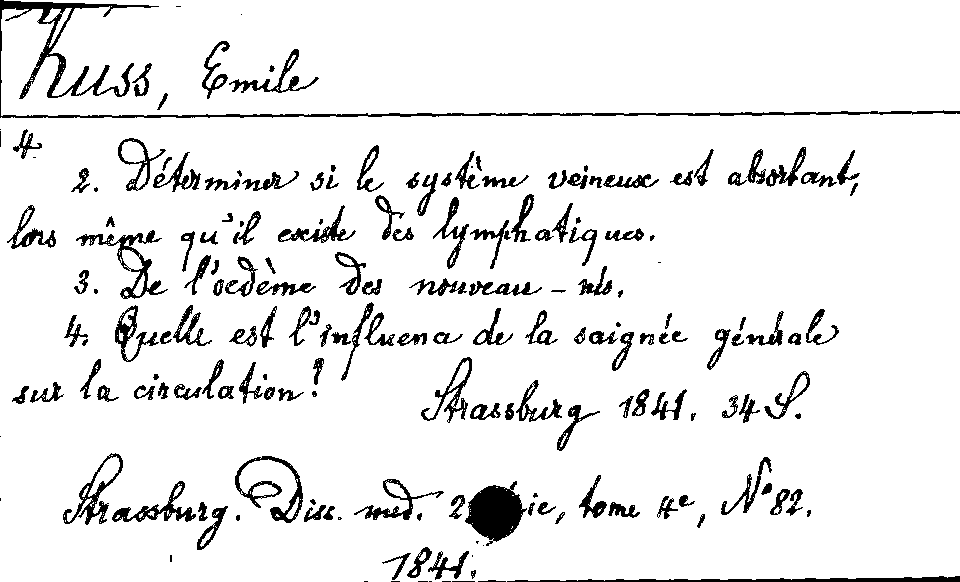 Kuss, Emile
4
2. Déterminer si le système veineux est absorbant,
lors même qu'il existe des lymphatiques.
3. De l'oedème des nouveau-nés.
4. Quelle est l'influence de la saignée générale
sur la circulation?
Strassburg 1841. 34 S.
Strassburg. Diss. med. 2 ie, tome 4e, No 82.
1841.